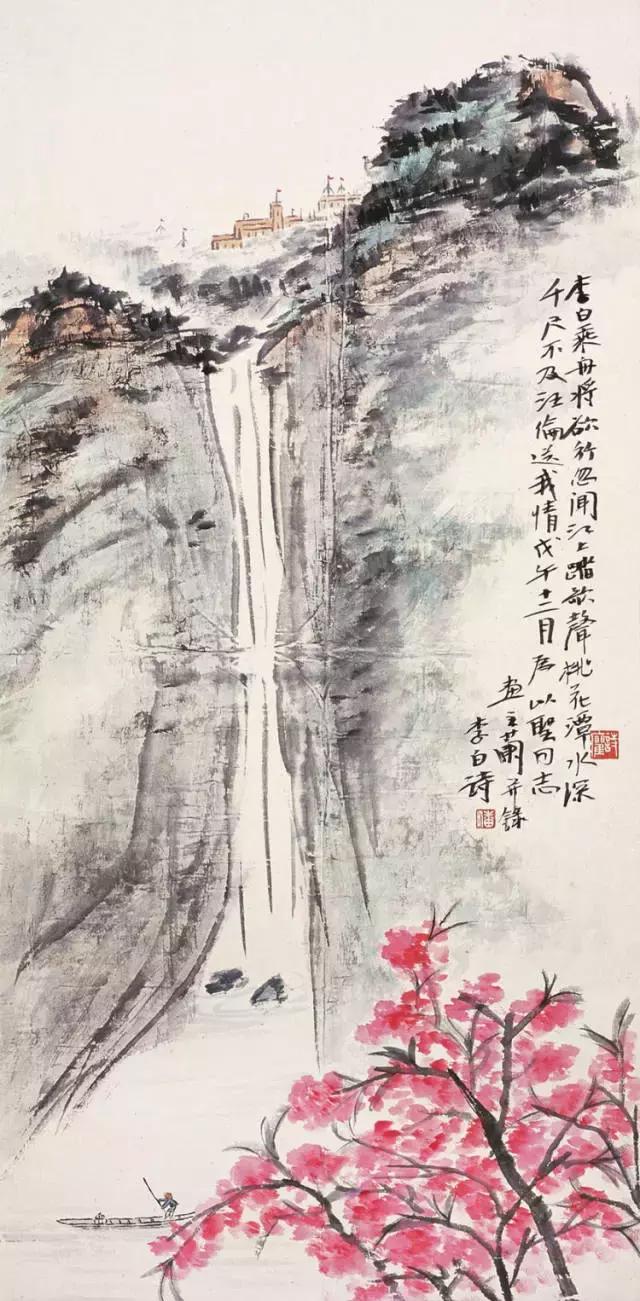 李白乘舟将欲行忽闻江上踏歌聲桃花潭水深
千尺不及汪倫送我情戊午十二月为以聖同志
画主蘭并錄
李白诗
潘